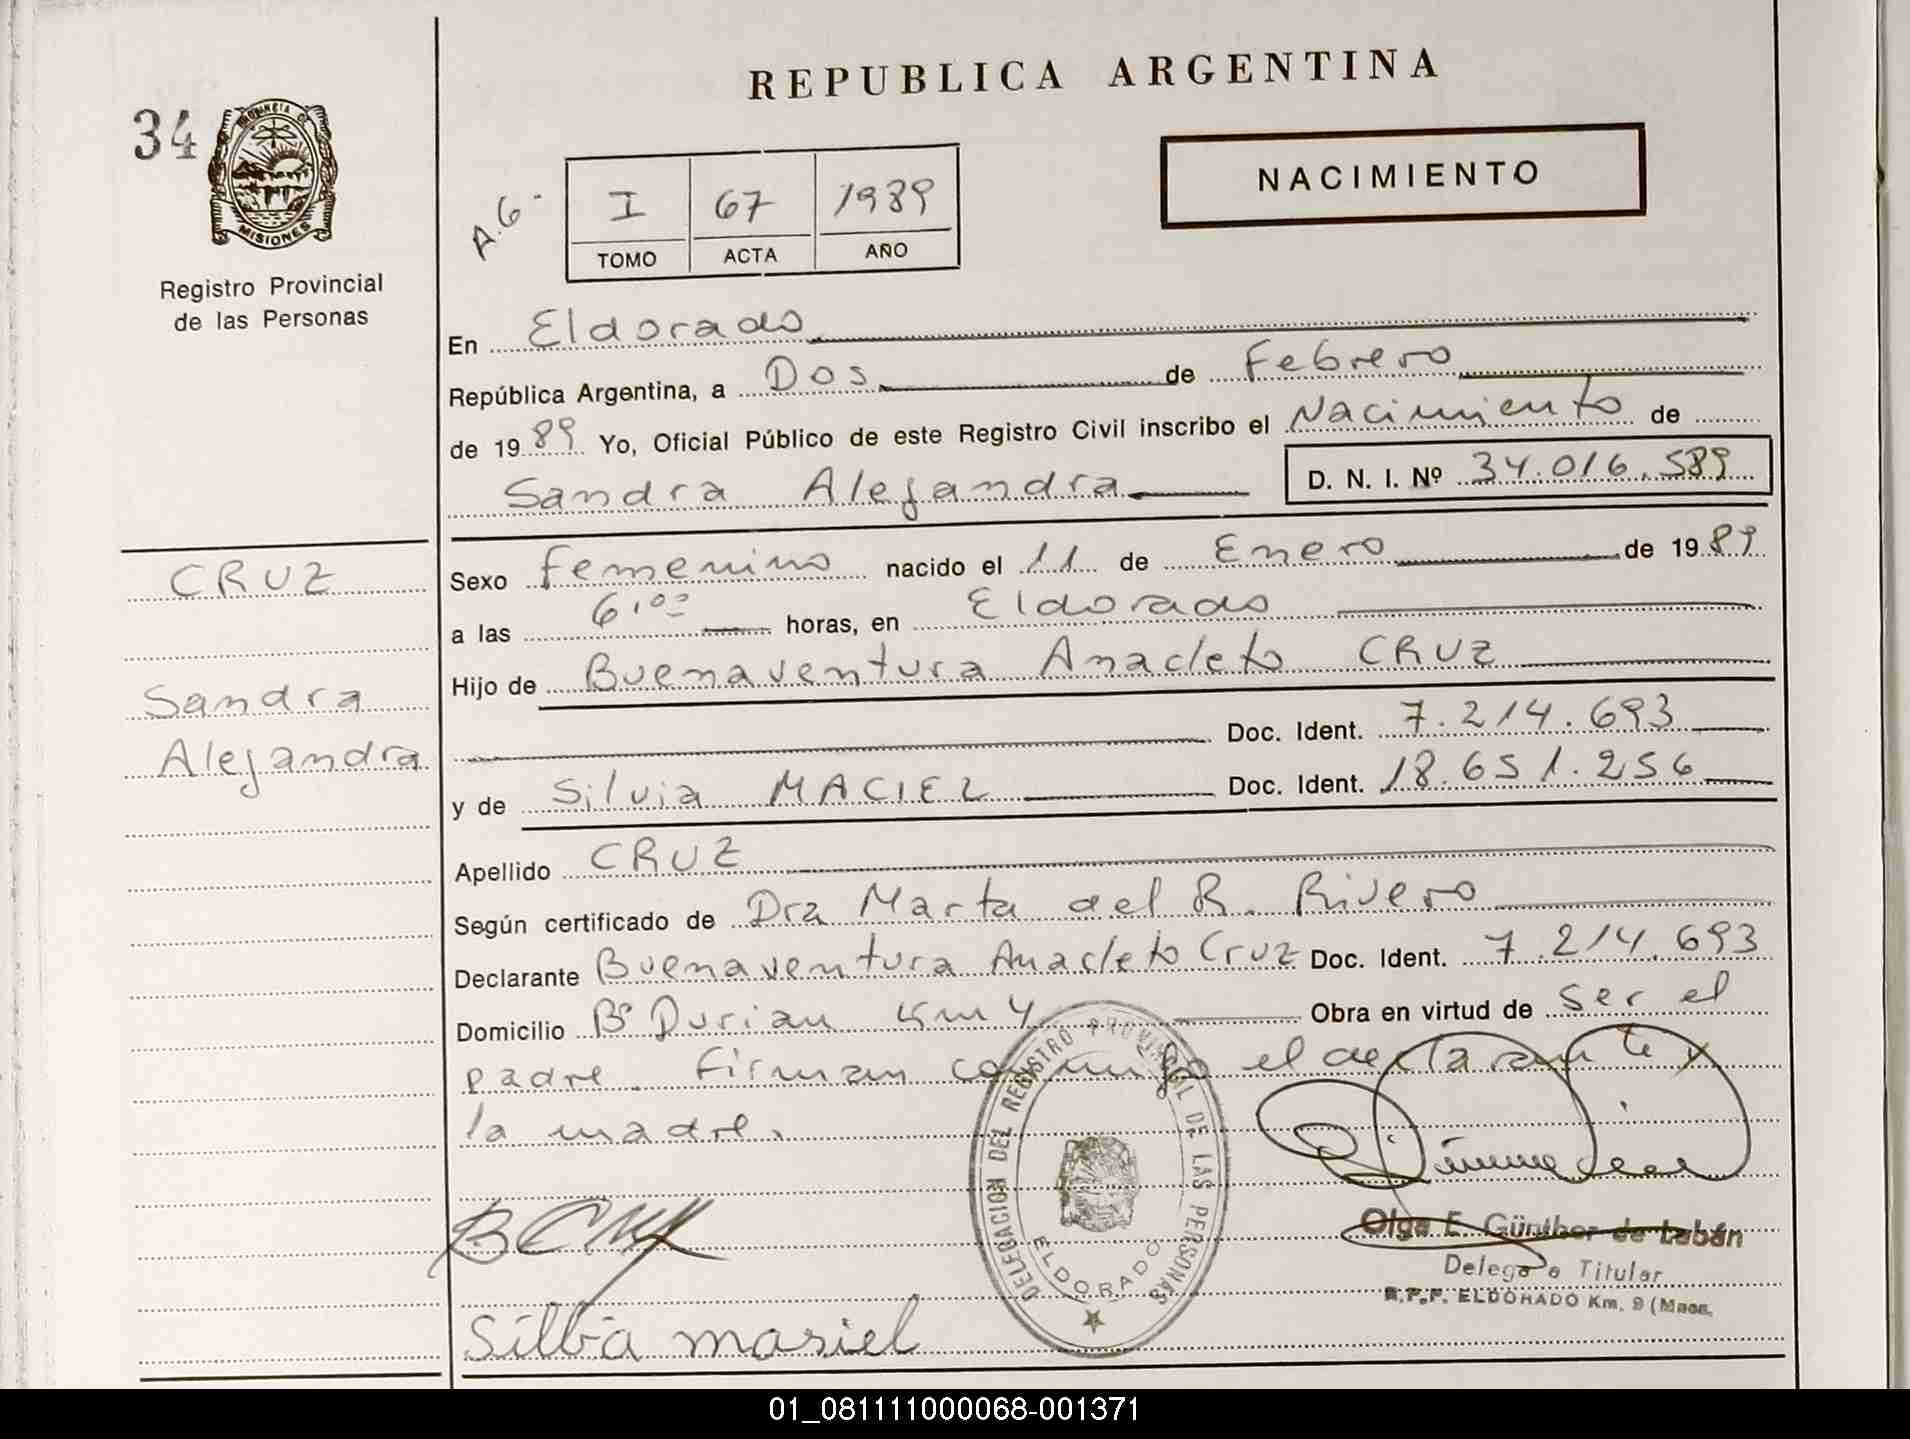 34
PROVINCIA DE
MISIONES
Registro Provincial
de las Personas
REPUBLICA ARGENTINA
A.G.
I 67 1989
TOMO ACTA AÑO
NACIMIENTO
En Eldorado
República Argentina, a Dos de Febrero
de 1989 Yo, Oficial Público de este Registro Civil inscribo el Nacimiento de
Sandra Alejandra D. N. I. Nº 34.016.589
CRUZ
Sandra
Alejandra
Sexo Femenino nacido el 11 de Enero de 1989
a las 6,00 horas, en Eldorado
Hijo de Buenaventura Anacleto CRUZ
Doc. Ident. 7.214.693
y de Silvia MACIEL Doc. Ident. 18.651.256
Apellido CRUZ
Según certificado de Dra Marta del R. Rivero
Declarante Buenaventura Anacleto Cruz Doc. Ident. 7.214.693
Domicilio Bº Durian Km 4 Obra en virtud de ser el
padre. Firman conmigo el declarante y
la madre.
DELEGACION DEL REGISTRO PROVINCIAL DE LAS PERSONAS
ELDORADO
B Cruz
Silbia masiel
Olga E. Günther de Labán
Delegada Titular
R.P.P. ELDORADO Km. 9 (Mnes.
01_081111000068-001371